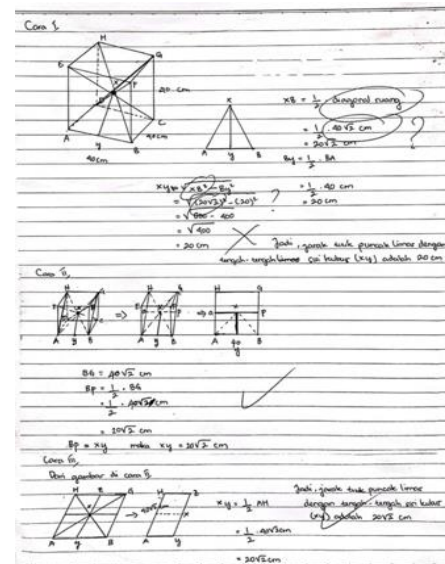 Cara I.
H
G
E
F
40 cm
D
C
A
y
B
40cm
40cm
x
A y B
XB = 1/2 . diagonal ruang
= 1/2 . 40√2 cm ?
= 20√2 cm
By = 1/2 . BA
= 1/2 . 40 cm
= 20 cm
xy = √XB² - By²
= √(20√2)² - (20)² ?
= √800 - 400
= √400
= 20 cm
Jadi, jarak titik puncak limas dengan
tengah-tengah sisi kubus (xy) adalah 20 cm
Cara II.
H G
H G
H G
⇒ ⇒
x P
A y B
A y B
A 40 B
y
BG = 40√2 cm
BP = 1/2 . BG
= 1/2 . 40√2 cm
= 20√2 cm
BP = xy maka xy = 20√2 cm
Cara III.
Dari gambar di cara II.
H G
A y B
→
40√2 cm
H
x
A y
xy = 1/2 AH
= 1/2 . 40√2cm
= 20√2cm
Jadi, jarak titik puncak limas
dengan tengah-tengah sisi kubus
(xy) adalah 20√2 cm